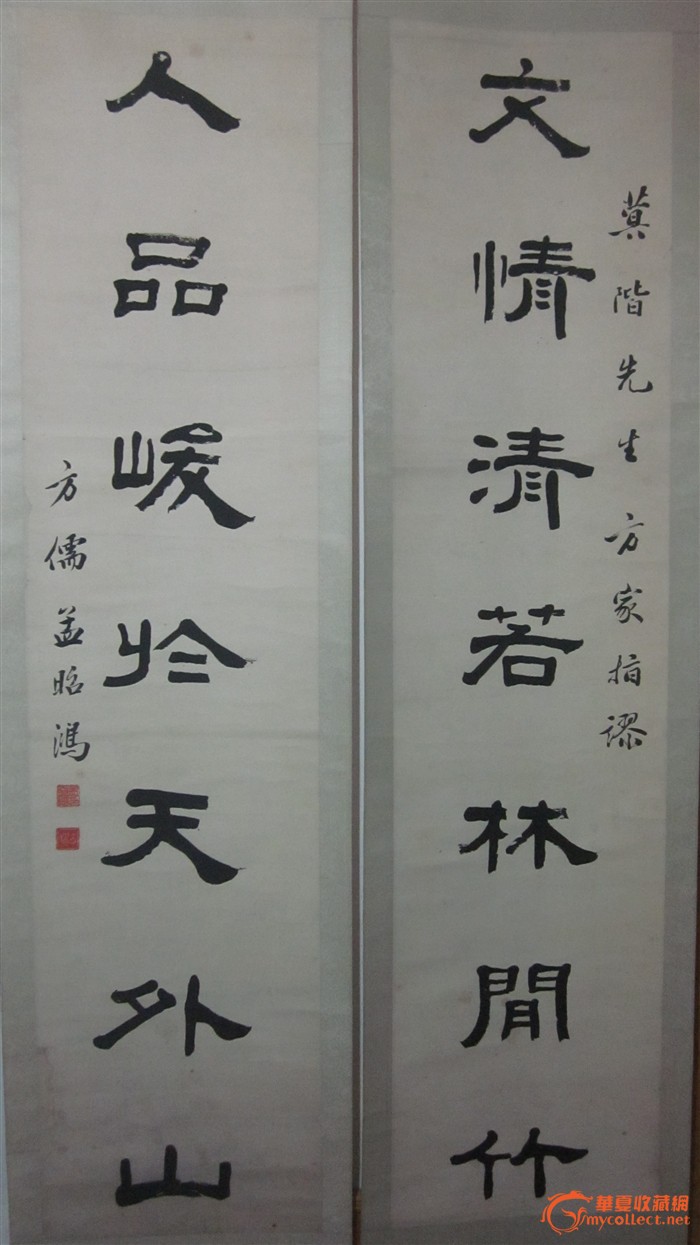 文情清若林間竹
蓂階先生方家指謬
人品峻於天外山
方儒孟昭鴻
華夏收藏網
mycollect.net